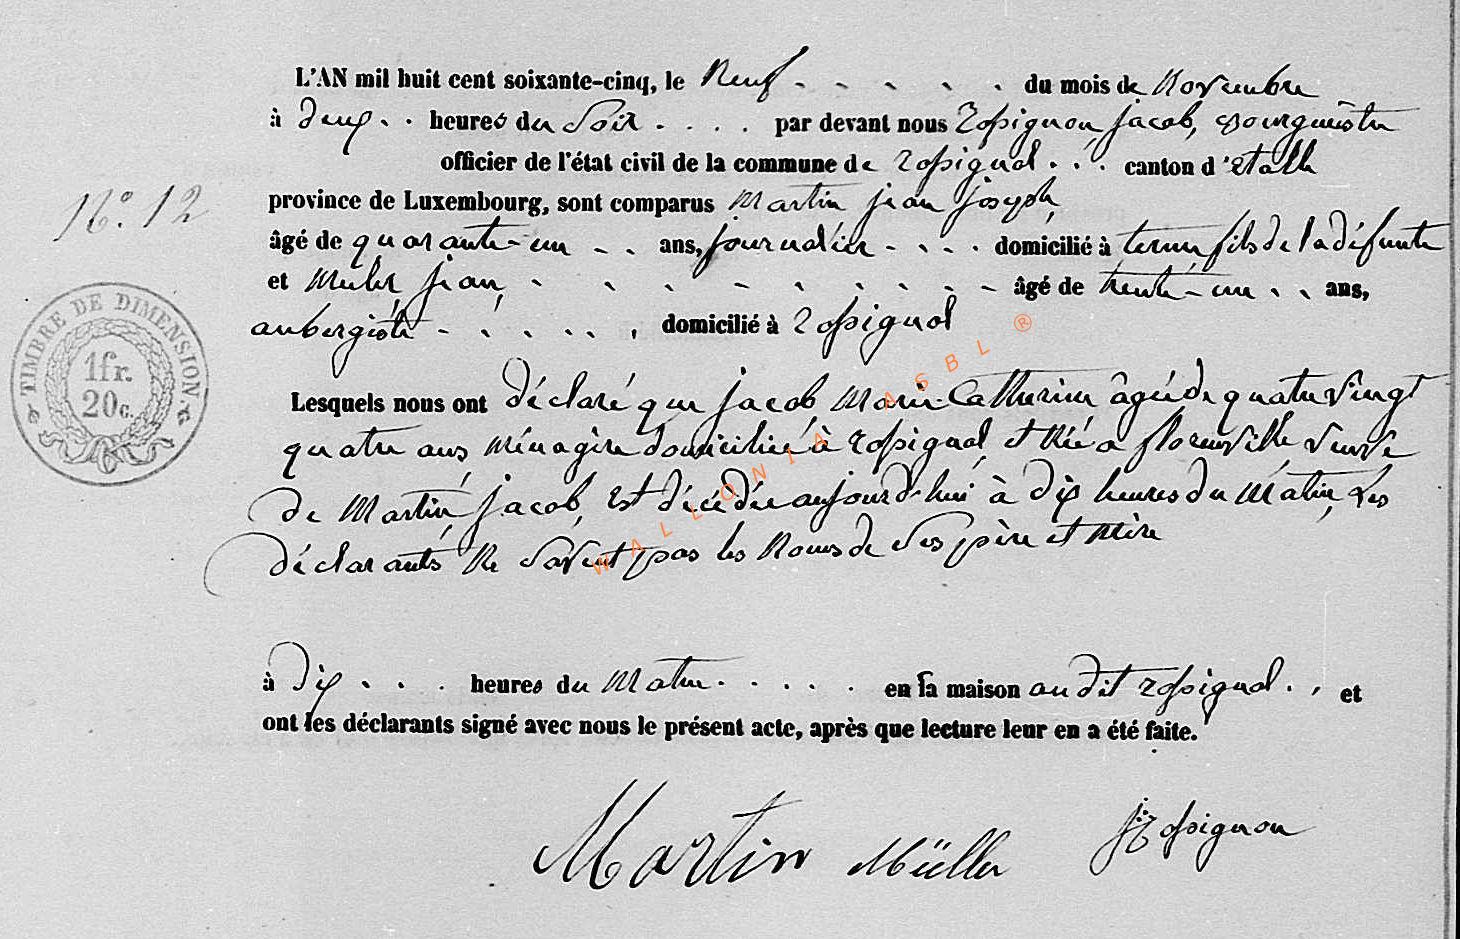 L'AN mil huit cent soixante-cinq, le Neuf - - - - - du mois de Novembre
à deux . . heures du Soir . . . . par devant nous Rossignon, Jacob, Bourguestre
officier de l'état civil de la commune de Rossignol . . . canton d'Etalle
N°. 12
province de Luxembourg, sont comparus Martin Jean Joseph,
âgé de quarante-un - . ans, journalier - . . . domicilié à fils de la défunte
et Muler Jean, - - - - - - - - - âgé de trente-un . . ans,
aubergiste - . . . . . domicilié à Rossignol
TIMBRE DE DIMENSION
1 fr.
20 c.
Lesquels nous ont déclaré que Jacob, Marie-Catherine âgée de quatre vingt
quatre ans ménagère domiciliée à Rossignol, et née a florenville veuve
de Martin, Jacob, est décédée aujourd'hui à dix heures du Matin, Les
déclarants Ne savent pas les Noms de Ses père et Mère
WALLONIA ASBL ®
à dix . . . heures du Matin . . . . . en sa maison audit Rossignol . . et
ont les déclarants signé avec nous le présent acte, après que lecture leur en a été faite.
Martin Müller J: Rossignon